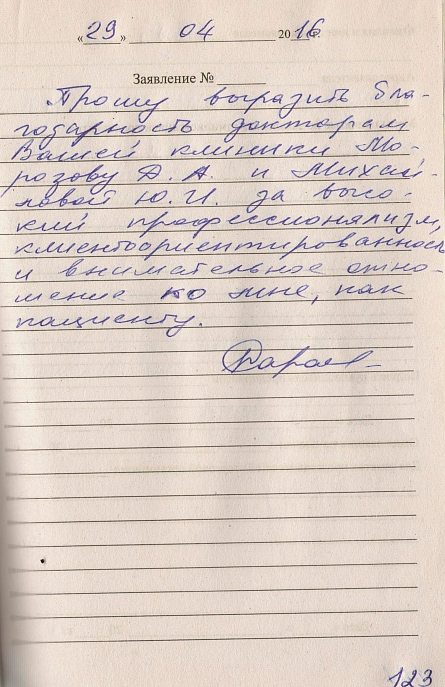 «29» 04 2016г.
Заявление №
Прошу выразить бла-
годарность докторам
Вашей клиники Мо-
розову Д. А. и Михай-
ловой Ю. И. за высо-
кий профессионализм,
клиентоориентированность
и внимательное отно-
шение ко мне, как
пациенту.
123